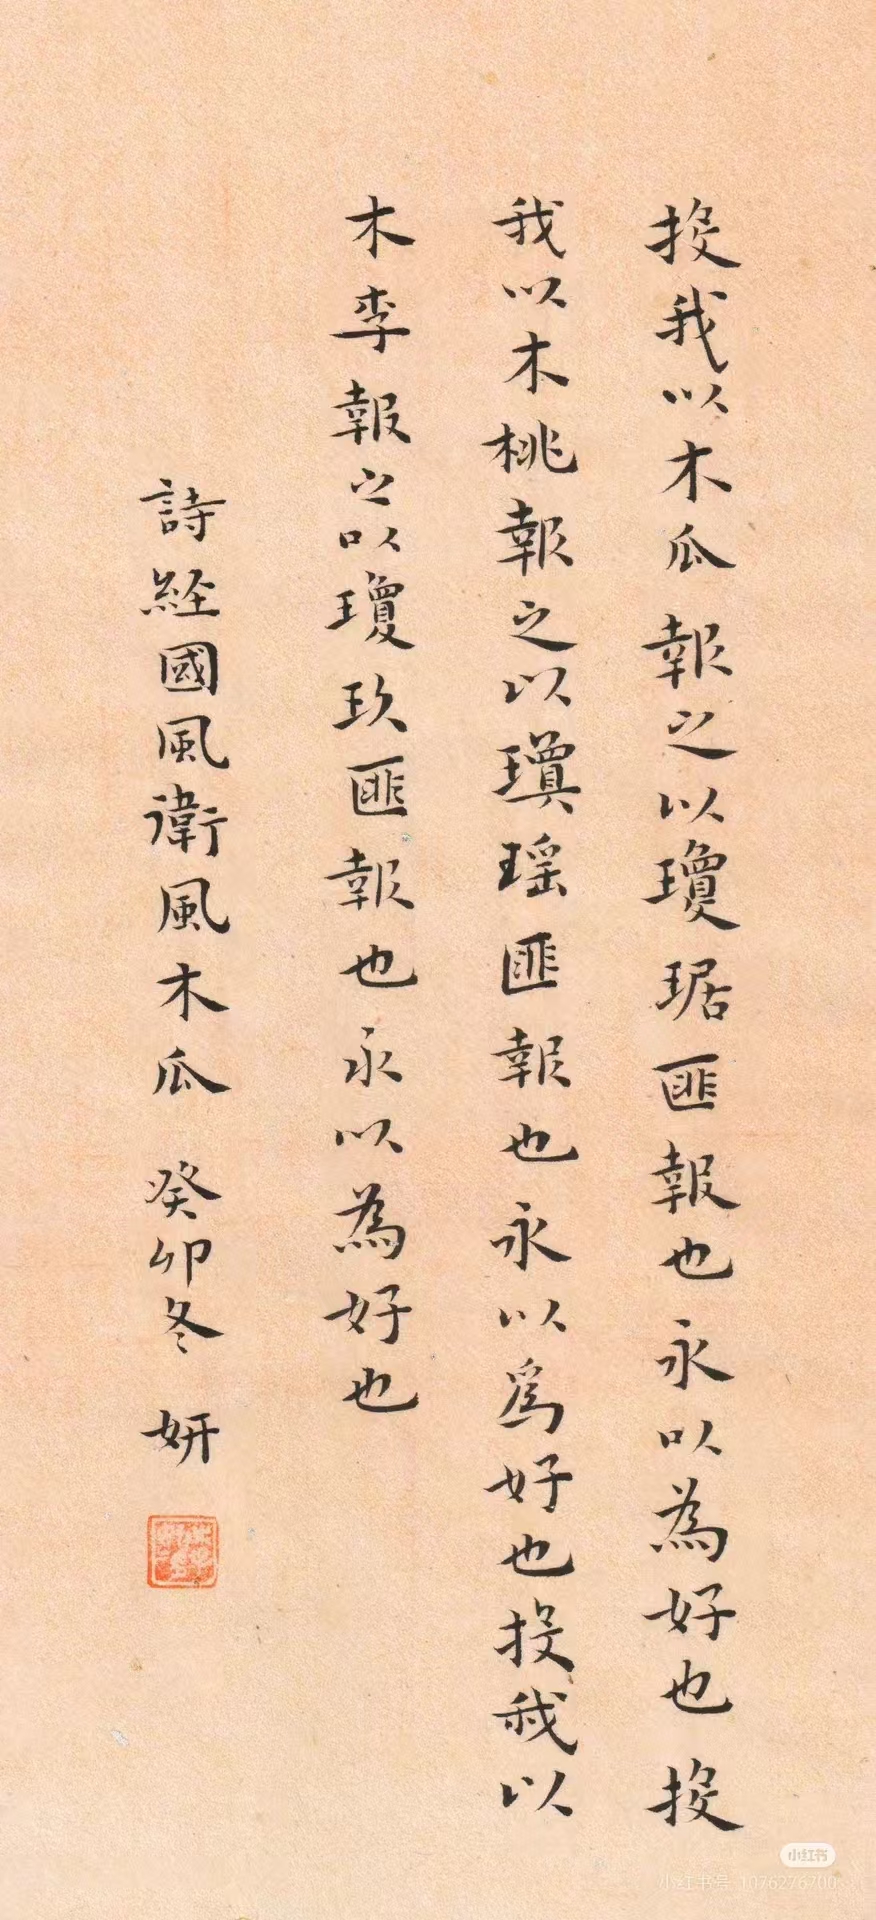 投我以木瓜報之以瓊琚匪報也永以為好也投
我以木桃報之以瓊瑤匪報也永以爲好也投我以
木李報之以瓊玖匪報也永以為好也
詩経國風衛風木瓜 癸卯冬 妍
小红书
小红书号 1076276700